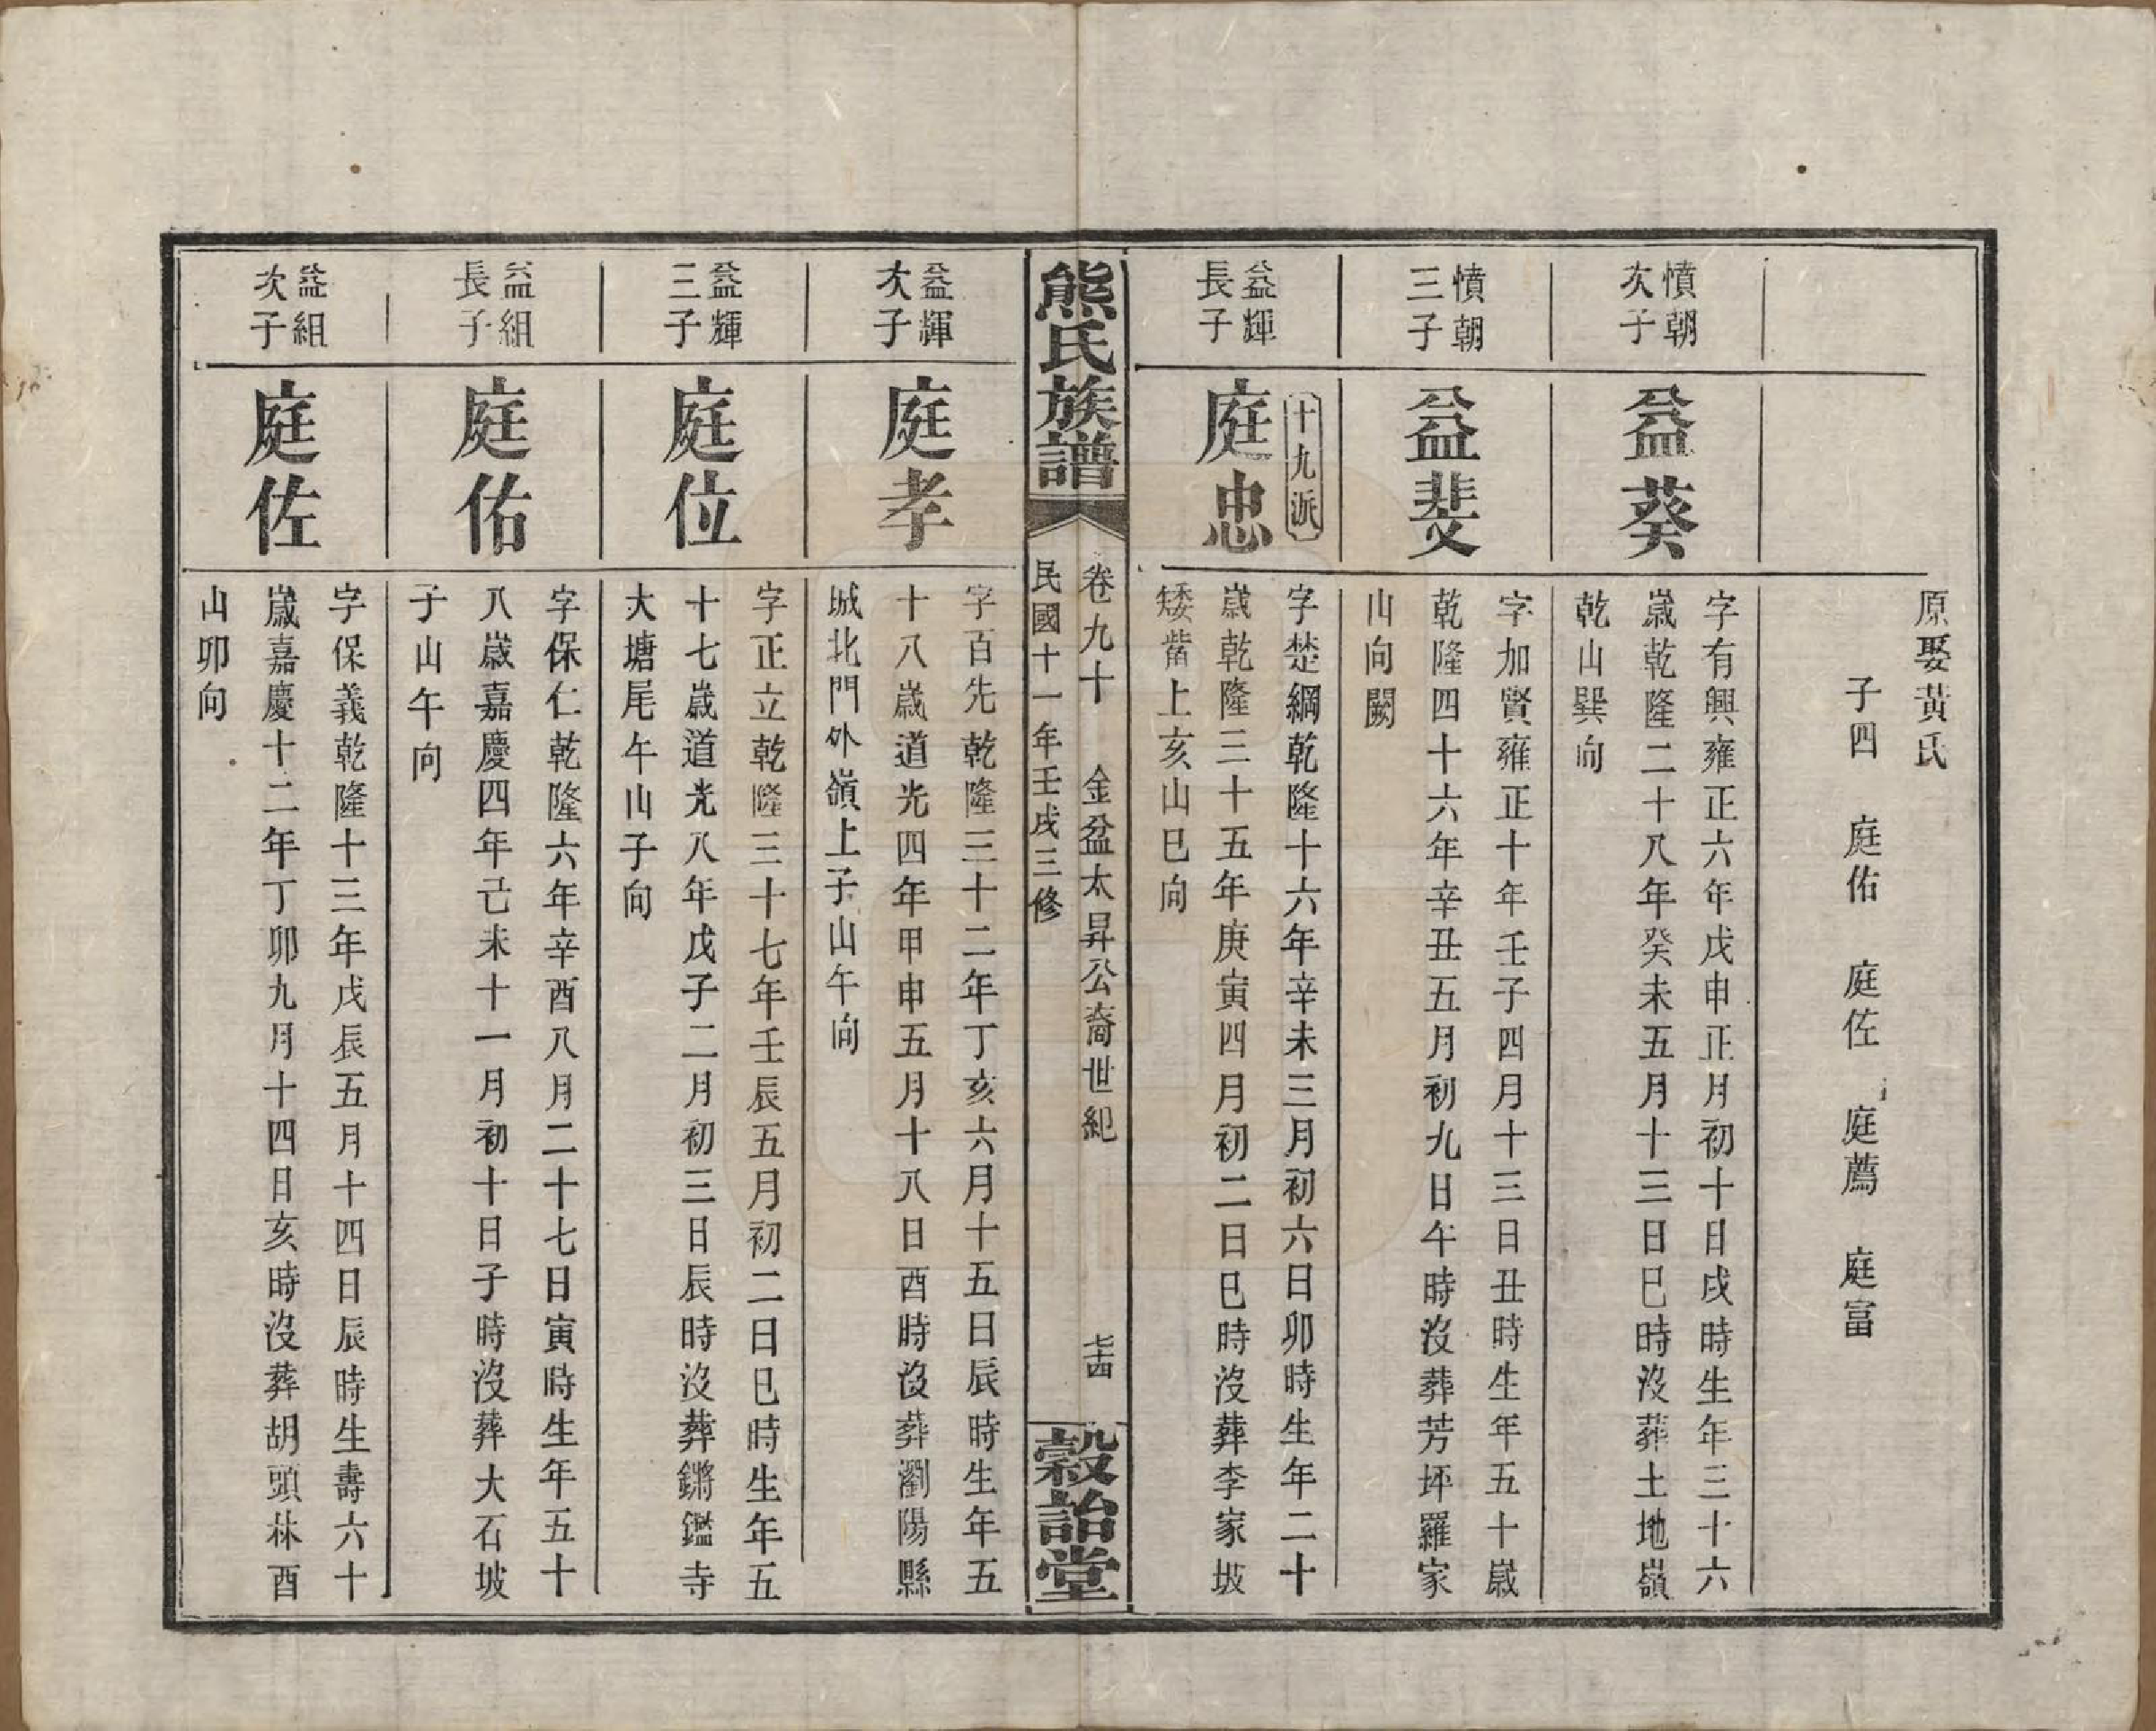 原娶黃氏
子四　庭佑　庭佐　庭薦　庭富
憤朝
次子
益葵
字有興雍正六年戊申正月初十日戌時生年三十六
歲乾隆二十八年癸未五月十三日巳時沒葬土地嶺
乾山巽向
憤朝
三子
益斐
字加賢雍正十年壬子四月十三日丑時生年五十歲
乾隆四十六年辛丑五月初九日午時沒葬芳坪羅家
山向闕
益輝
長子
十九派
庭忠
字楚綱乾隆十六年辛未三月初六日卯時生年二十
歲乾隆三十五年庚寅四月初二日巳時沒葬李家坡
矮觜上亥山巳向
熊氏族譜
卷九十　金盆太昇公裔世紀　七十四
民國十一年壬戌三修
穀詒堂
益輝
次子
庭孝
字百先乾隆三十二年丁亥六月十五日辰時生年五
十八歲道光四年甲申五月十八日酉時沒葬瀏陽縣
城北門外嶺上子山午向
益輝
三子
庭位
字正立乾隆三十七年壬辰五月初二日巳時生年五
十七歲道光八年戊子二月初三日辰時沒葬鏘鑑寺
大塘尾午山子向
益組
長子
庭佑
字保仁乾隆六年辛酉八月二十七日寅時生年五十
八歲嘉慶四年己未十一月初十日子時沒葬大石坡
子山午向
益組
次子
庭佐
字保義乾隆十三年戊辰五月十四日辰時生壽六十
歲嘉慶十二年丁卯九月十四日亥時沒葬胡頭林酉
山卯向